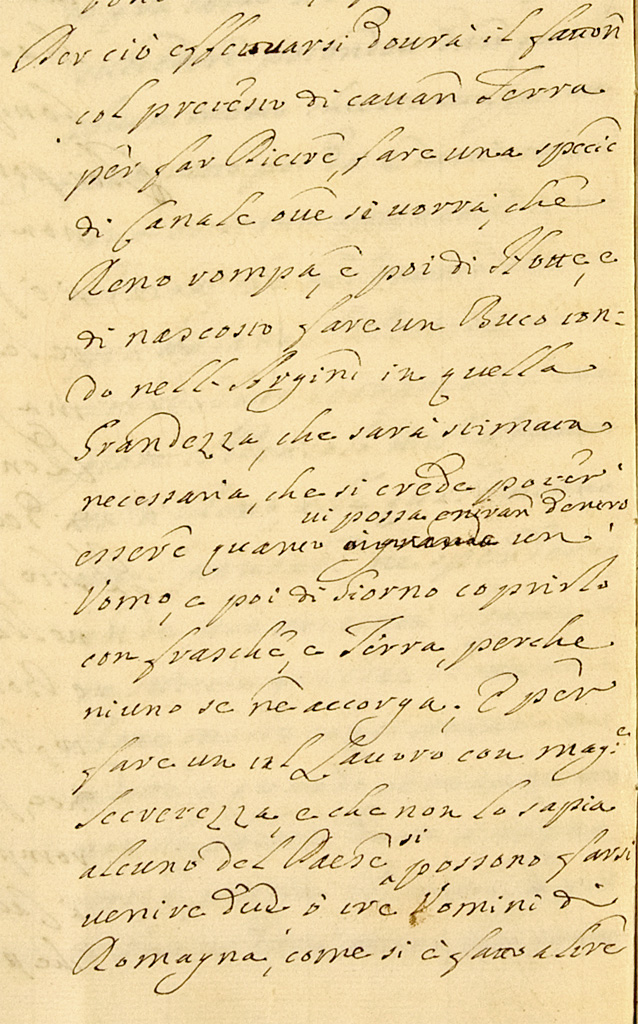 Per ciò effettuarsi dourà il fattore
col pretesto di cauare Terra
per far Pietre, fare una specie
di Canale oue si uorrà, che
Reno rompa, e poi di Notte, e
di nascosto fare un Buco ton=
do nell' Argine in quella
Grandezza, che sarà stimata
necessaria, che si crede poter
ui possa entrare dentro
essere quanto un
Vomo, e poi di Giorno coprirlo
con frasche, e Terra, perche
niuno se ne accorga; E per
fare un tal Lauoro con mag.e
Secretezza, e che non lo sapia
alcuno del Paese si possono farsi
uenire due ò tre Vomini di
Romagna, come si è fatto altre